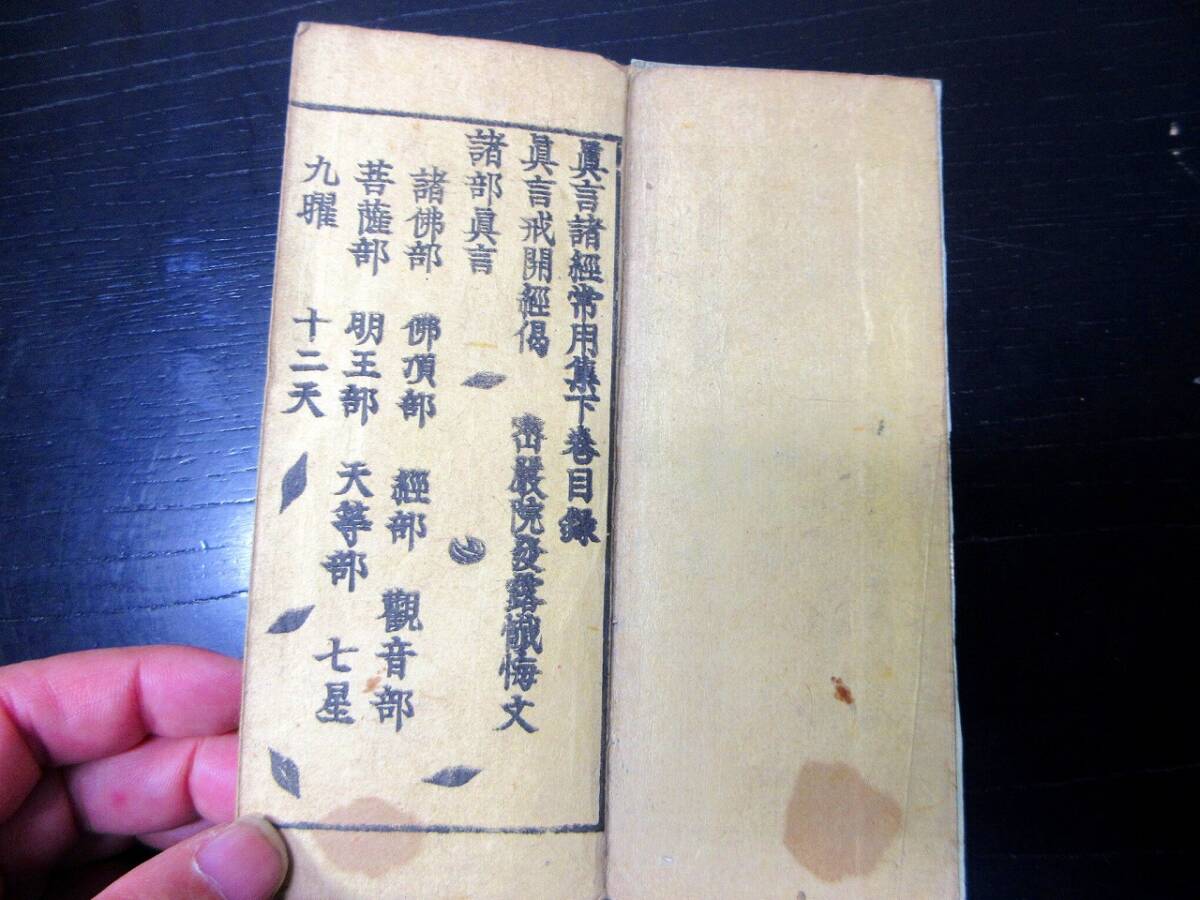 眞言諸經常用集下卷目錄
眞言戒開經偈 密嚴院發露懺悔文
諸部眞言
諸佛部 佛頂部 經部 觀音部
菩薩部 明王部 天等部 七星
九曜 十二天